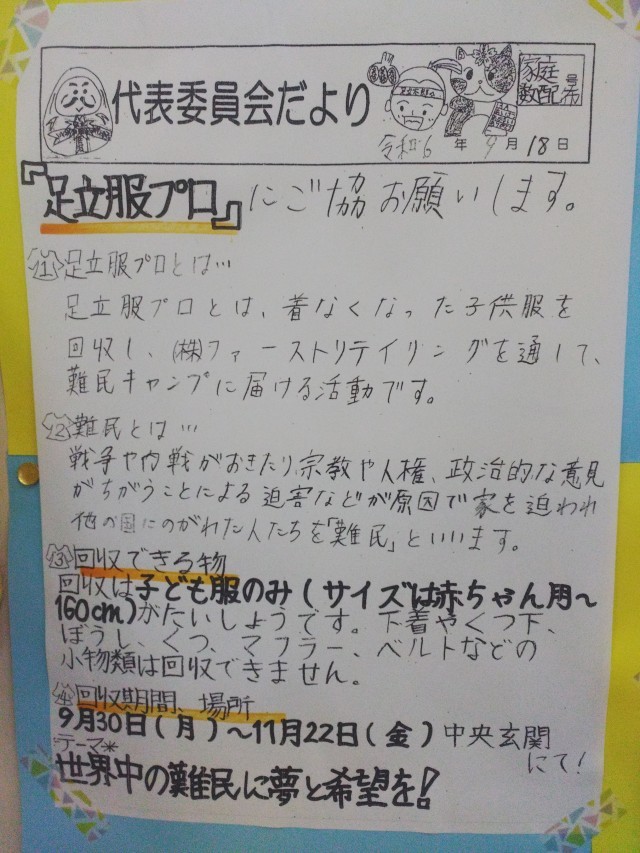 代表委員会だより
家庭
数配布
令和6年9月18日
『足立服プロ』にご協お願いします。
1 足立服プロとは…
足立服プロとは、着なくなった子供服を
回収し、(株)ファーストリテイリングを通して、
難民キャンプに届ける活動です。
2 難民とは…
戦争や内戦がおきたり、宗教や人権、政治的な意見
がちがうことによる迫害などが原因で家を追われ
他の国にのがれた人たちを「難民」といいます。
3 回収できる物
回収は子ども服のみ(サイズは赤ちゃん用〜
160cm)がたいしょうです。下着やくつ下、
ぼうし、くつ、マフラー、ベルトなどの
小物類は回収できません。
4 回収期間、場所
9月30日(月)〜11月22日(金)中央玄関
にて!
テーマ*
世界中の難民に夢と希望を!